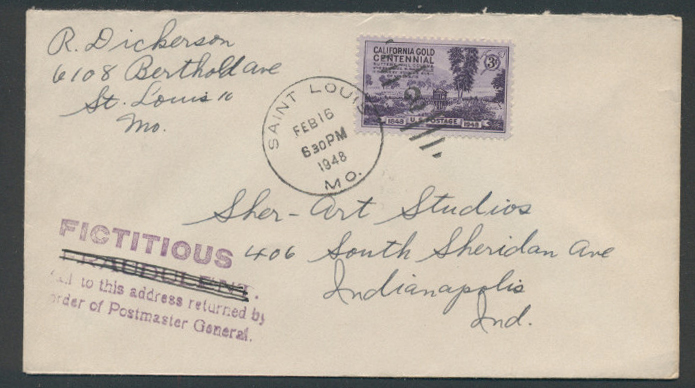 R. Dickerson
6108 Berthold ave
St. Louis 10
Mo.
CALIFORNIA GOLD
CENTENNIAL
3¢
1848 U.S. POSTAGE 1948
SAINT LOUIS
FEB 16
6 30 PM
1948
MO.
Sher-Art Studios
406 South Sheridan Ave
Indianapolis
Ind.
FICTITIOUS
FRAUDULENT.
Mail to this address returned by
order of Postmaster General.